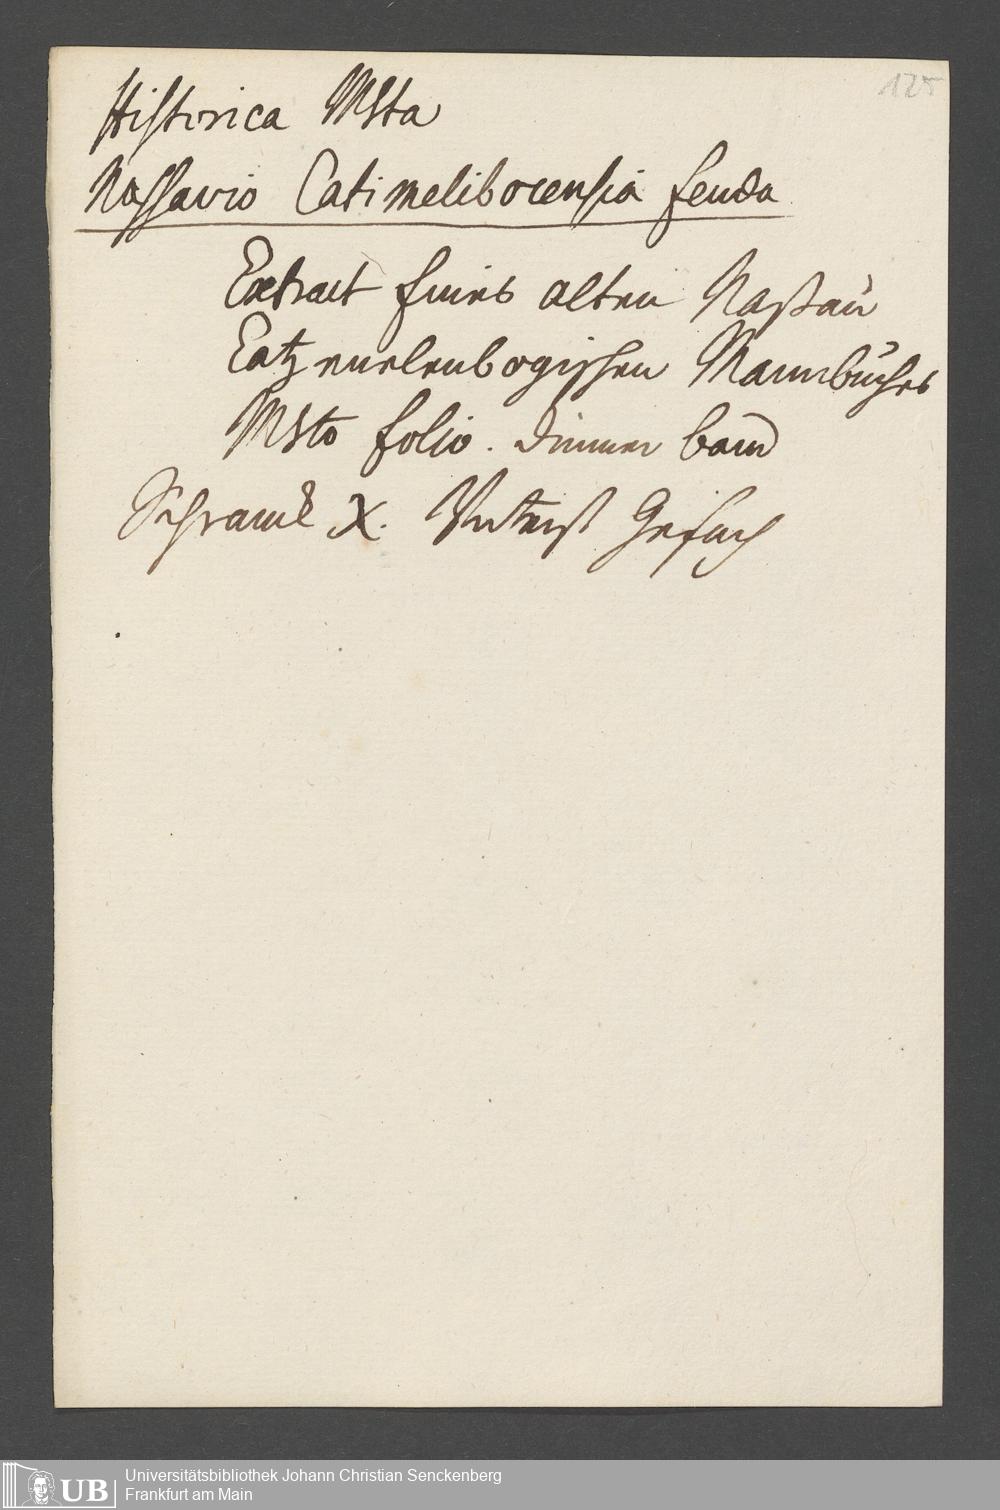 125
Historica Msta
Nassavio Catimelibocensia feuda
Extract Eines alten Naßau
Catzenelenbogischen Mannbuches
Msto folio. dinner band
Schranck X. Unterst Gefach
Universitätsbibliothek Johann Christian Senckenberg
Frankfurt am Main
UB